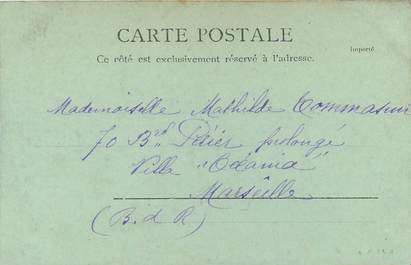 CARTE POSTALE
Ce côté est exclusivement réservé à l'adresse.
Importé
Mademoiselle Mathilde Tommasini
70 Bd Périer prolongé
Ville "Océania"
Marseille
(B. d R)